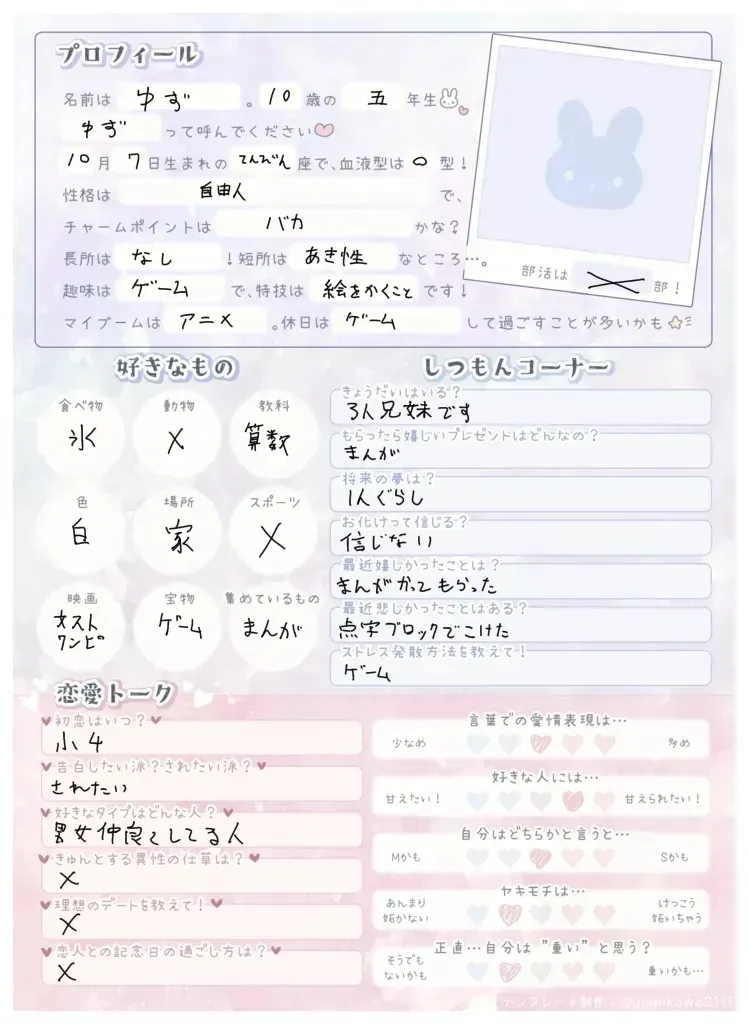 プロフィール
名前は ゆず 。10歳の 五 年生
ゆず って呼んでください♡
10月 7日生まれの てんびん 座で、血液型は O 型!
性格は 自由人 で、
チャームポイントは バカ かな?
長所は なし !短所は あき性 なところ…。
趣味は ゲーム で、特技は 絵をかくこと です!
マイブームは アニメ 。休日は ゲーム して過ごすことが多いかも☆
部活は × 部!
好きなもの
食べ物 動物 教科
氷 × 算数
色 場所 スポーツ
白 家 ×
映画 宝物 集めているもの
オスト
ワンピ ゲーム まんが
しつもんコーナー
きょうだいはいる?
3人兄妹です
もらったら嬉しいプレゼントはどんなの?
まんが
将来の夢は?
1人ぐらし
お化けって信じる?
信じない
最近嬉しかったことは?
まんがかってもらった
最近悲しかったことはある?
点字ブロックでこけた
ストレス発散方法を教えて!
ゲーム
恋愛トーク
♥初恋はいつ?♥
小4
♥告白したい派?されたい派?♥
されたい
♥好きなタイプはどんな人?♥
男女仲良くしてる人
♥きゅんとする異性の仕草は?♥
×
♥理想のデートを教えて!♥
×
♥恋人との記念日の過ごし方は?♥
×
言葉での愛情表現は…
少なめ 多め
好きな人には…
甘えたい! 甘えられたい!
自分はどちらかと言うと…
Mかも Sかも
ヤキモチは…
あんまり
妬かない
けっこう
妬いちゃう
正直…自分は"重い"と思う?
そうでも
ないかも
重いかも…
テンプレート制作: